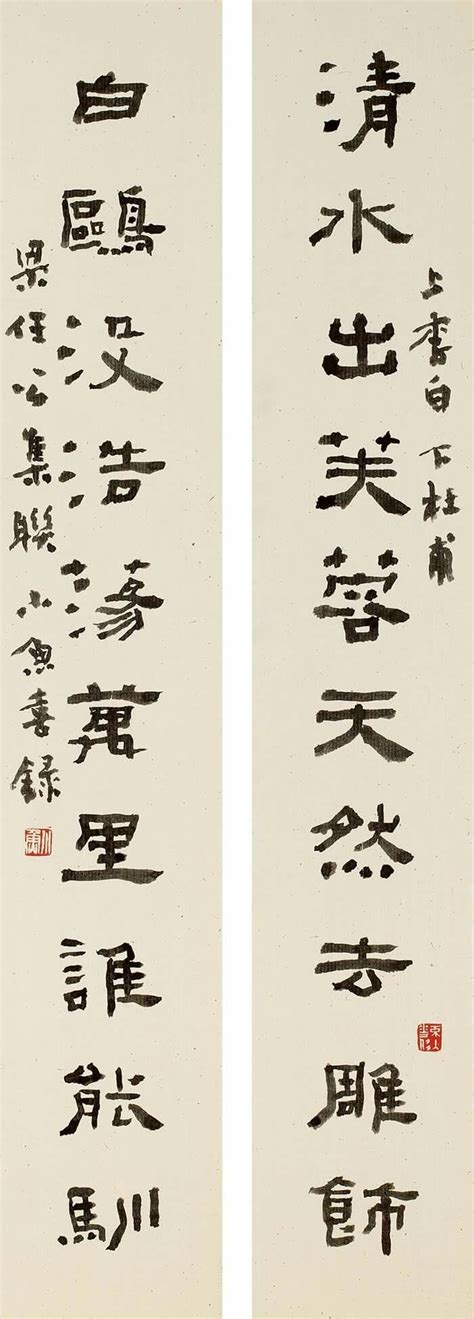 清水出芙蓉天然去雕飾
上李白下杜甫
白鷗没浩蕩萬里誰能馴
梁任公集聯小魚喜録